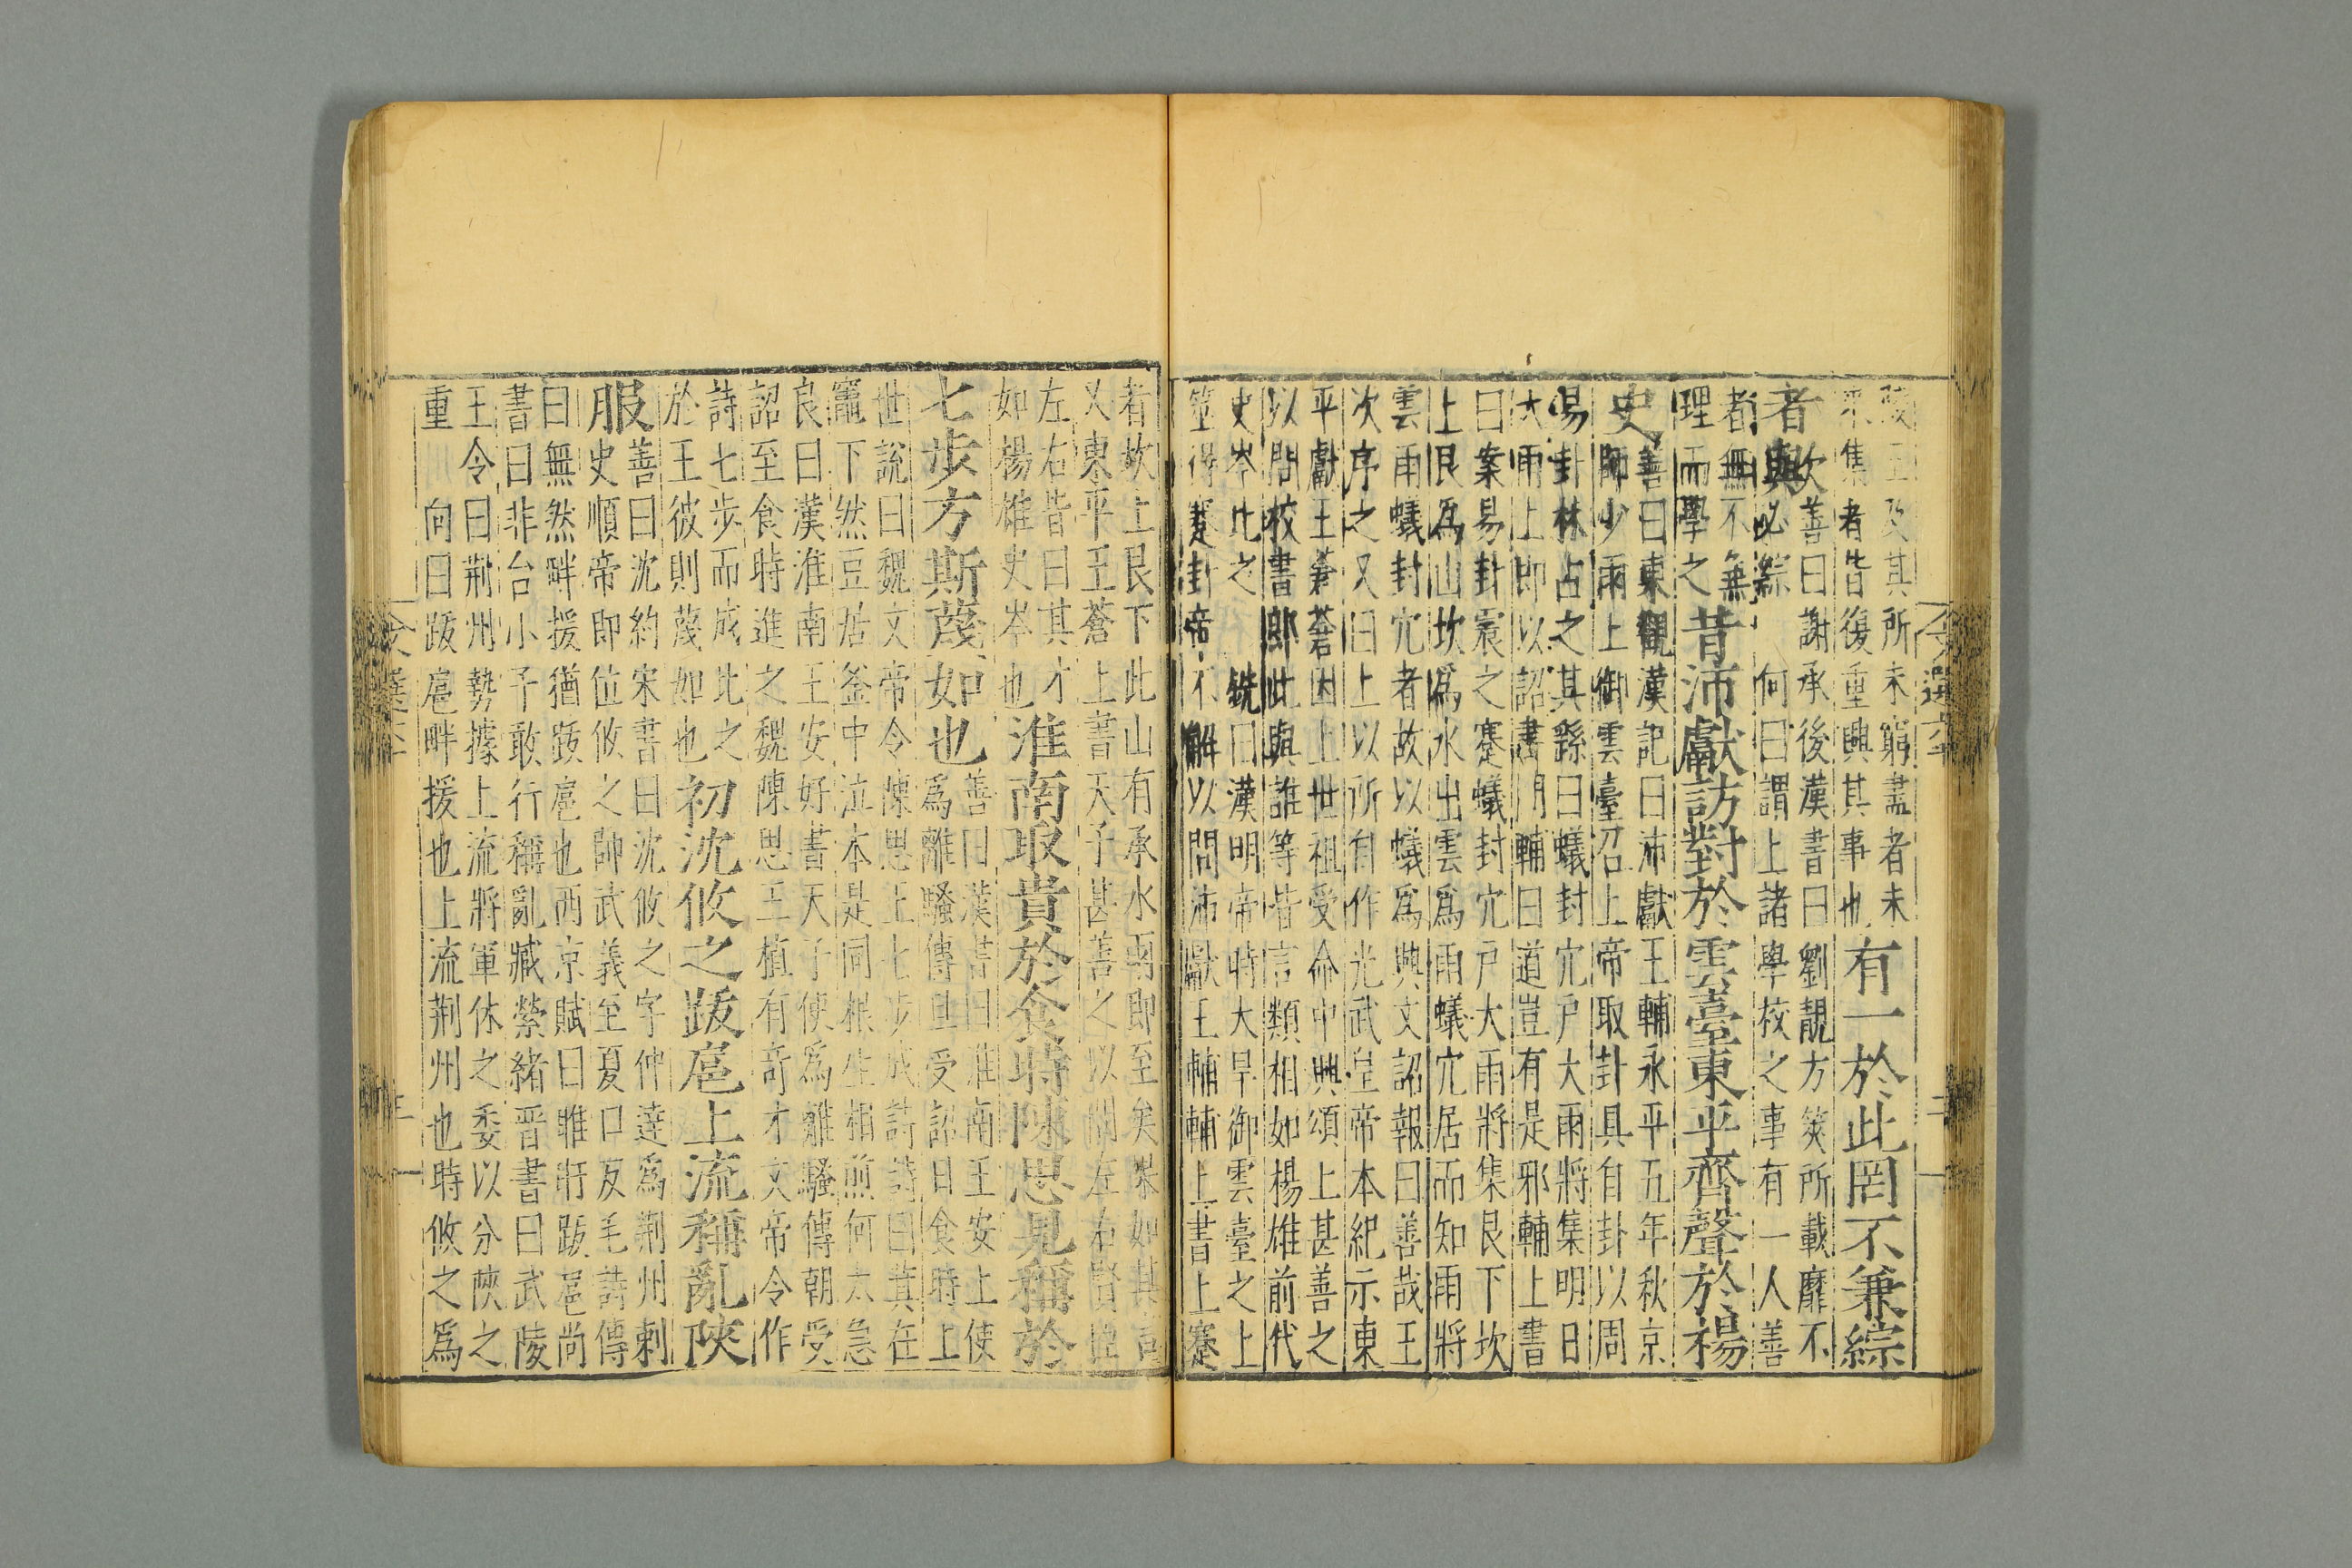 陵王及其所未窮盡者未
采集者皆復重興其事也有一於此罔不兼綜
者歟善曰謝承後漢書曰劉靚方筴所載靡不
與必綜 何曰謂上諸學校之事有一人善
者無不無
理而學之昔沛獻訪對於雲臺東平齊聲於楊
史善曰東觀漢記曰沛獻王輔永平五年秋京
師少雨上御雲臺召上帝取卦具自卦以周
易卦林占之其繇曰蟻封穴戶大雨將集明日
大雨上即以詔書問輔曰道豈有是邪輔上書
曰案易卦震之蹇蟻封穴戶大雨將集艮下坎
上艮爲山坎爲水出雲爲雨蟻穴居而知雨將
雲雨蟻封穴者故以蟻爲興文詔報曰善哉王
次序之又曰上以所自作光武皇帝本紀示東
平獻王蒼蒼因上世祖受命中興頌上甚善之
以問校書郎此與誰等皆言類相如楊雄前代
史岑比之 銑曰漢明帝時大旱御雲臺之上
筮得蹇卦帝不解以問沛獻王輔輔上書上蹇
者坎上艮下此山有承水雨即至矣果如其言
又東平王蒼上書天子甚善之以問左右賢
左右皆曰其才
如楊雄史岑也淮南取貴於食時陳思見稱於
七步方斯蔑如也善曰漢書曰淮南王安上使
爲離騷傳旦受詔日食時上
世說曰魏文帝令陳思王七步成詩詩曰萁在
竈下然豆居釜中泣本是同根生相煎何太急
良曰漢淮南王安好書天子使爲離騷傳朝受
詔至食時進之魏陳思王植有奇才文帝令作
詩七步而成此之
於王彼則蔑如也初沈攸之跋扈上流稱亂陝
服善曰沈約宋書曰沈攸之字仲達爲荆州刺
史順帝即位攸之帥武義至夏口反毛詩傳
曰無然畔援猶跋扈也西京賦曰睢盱跋扈尚
書曰非台小子敢行稱亂臧榮緒晉書曰武陵
王令曰荆州勢據上流將軍休之委以分陝之
重 向曰跋扈畔援也上流荆州也時攸之爲